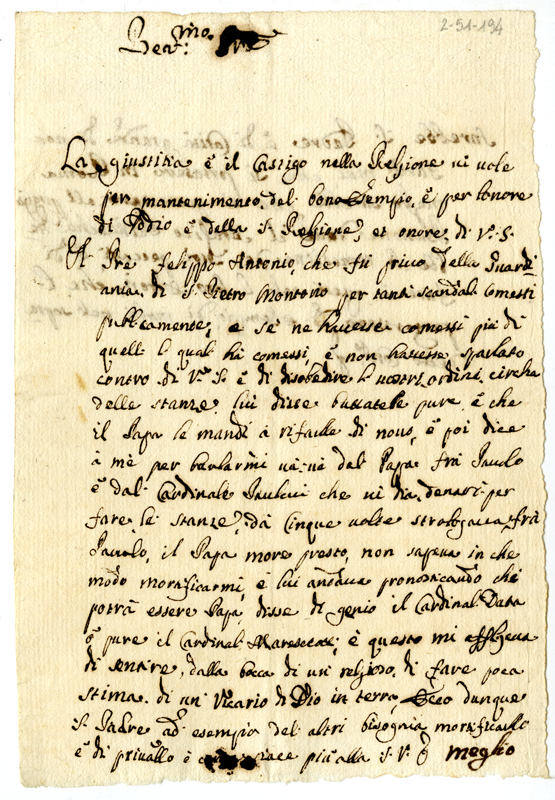 2-51-194
Beat.mo
La giustitia è il Castigo nella Relgione ui uole
per mantenimento del bono esempio, è per l'onore
di Iddio è della S. Relgione, et onore di V.S.
Il Pre Felippo Antonio, che fù priuo della Guardi
ania di S. Pietro Montorio per tanti scandali Comessi
publicamente, e se ne hauesse comessi più di
quelli li quali hà comessi, è non hauesse sparlato
contro di V. S. è di disobedire li uostri ordini circha
delle stanze, lui disse buttatele pure, è che
il Papa le mandi à rifarle di nouo, è poi dice
à mè per burlarmi uà uà dal Papa frà Paulo
è dal Cardinale Paulucci che ui dia denari per
fare le stanze, dà Cinque uolte strologaua frà
Paulo, il Papa more presto, non sapeua in che
modo mortificarmi, è lui andaua pronosticando chi
potrà essere Papa, disse di genio il Cardinal Data
ò pure il Cardinal Marescotti, è questo mi affligeua
di sentire, dalla bocca di un relgioso, di fare poca
stima di un Vicario di Dio in terra, Ecco dunque
S. Padre ad esempio del altri bisognia mortificarlo
è di priuallo ò piace più alla S.V. ò meglio